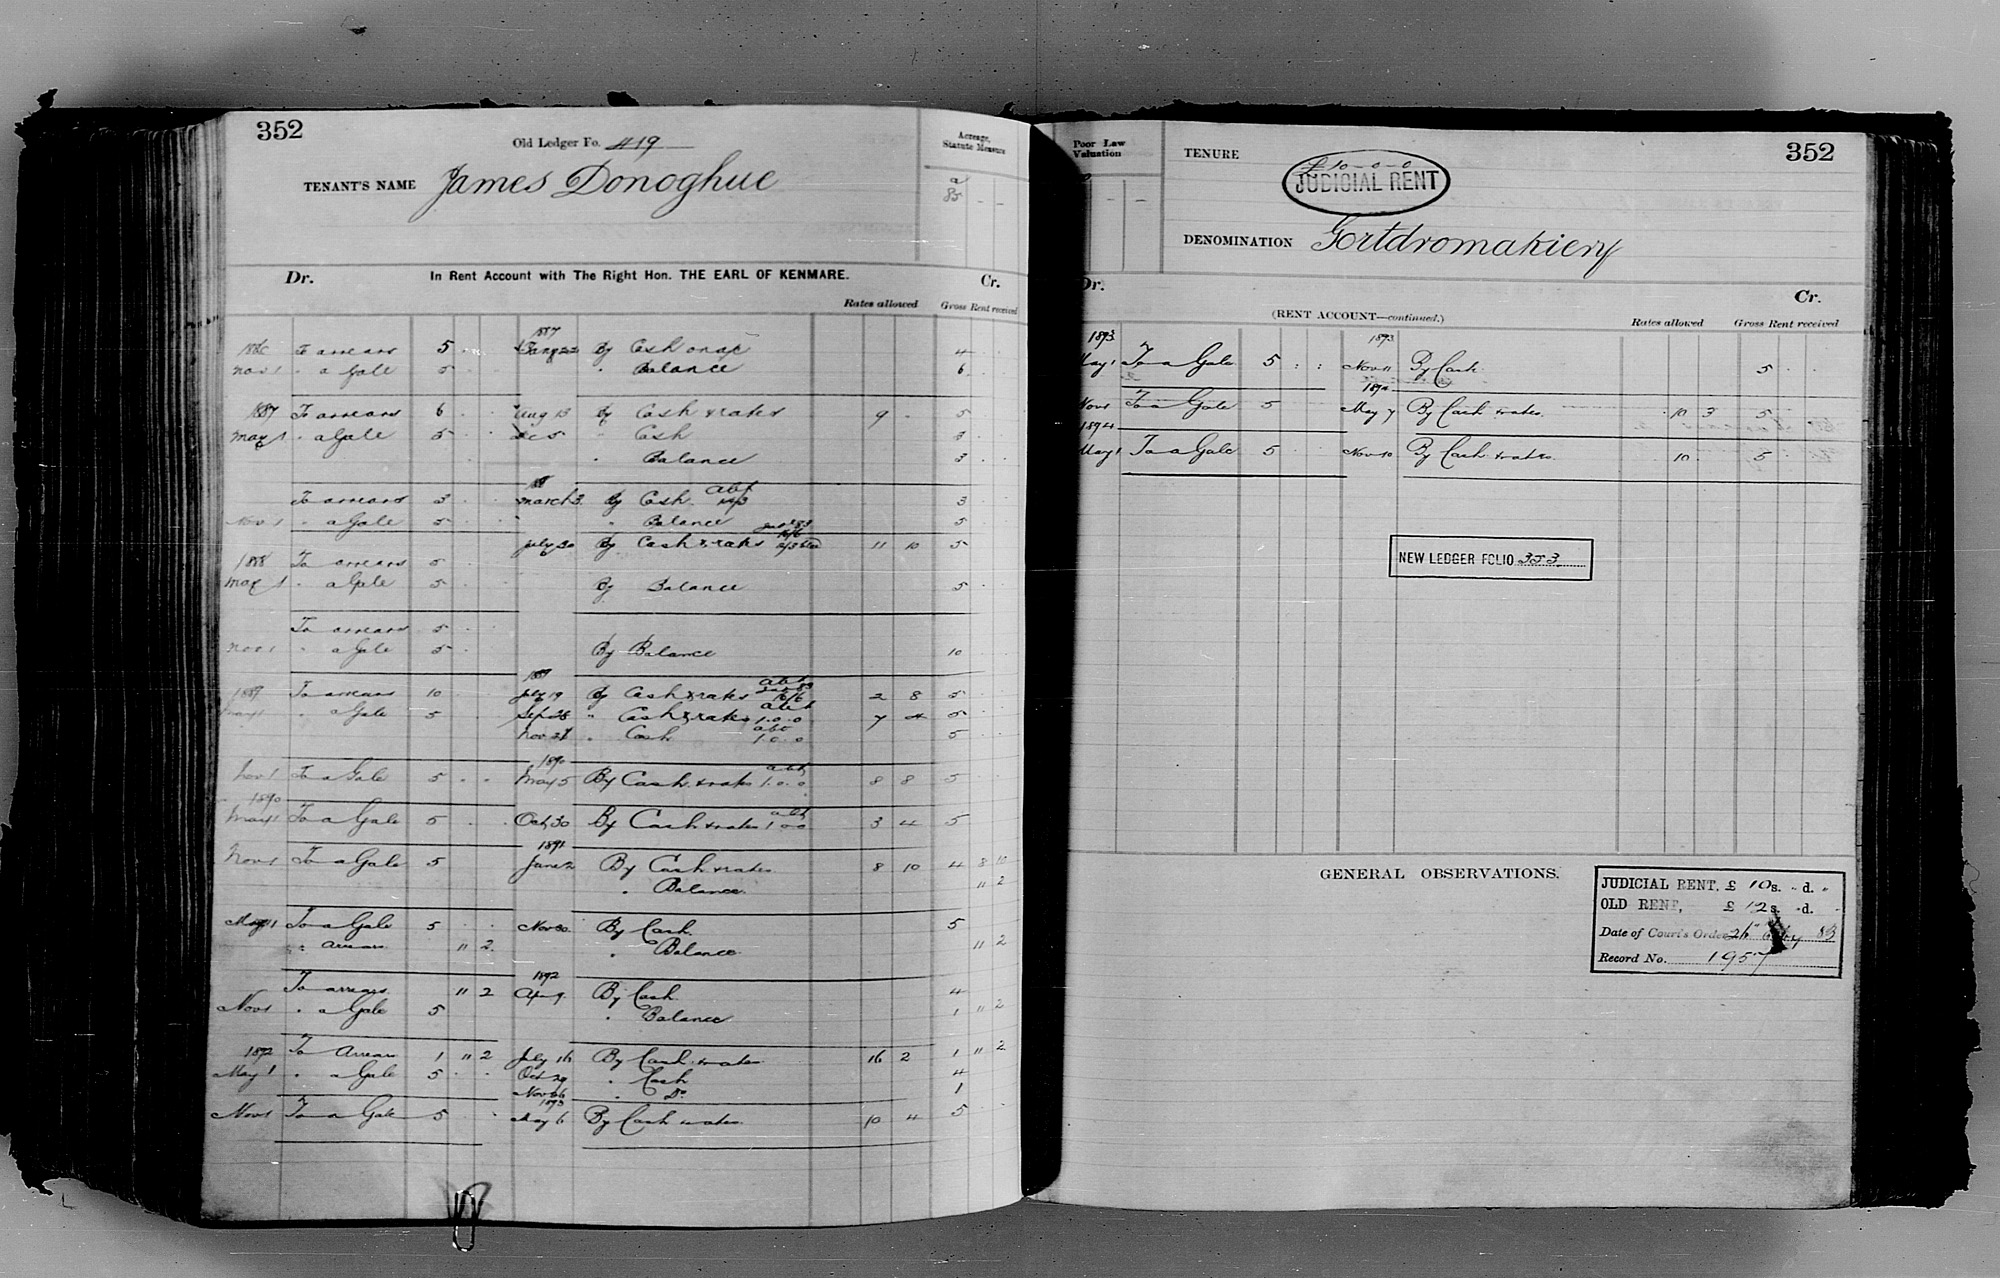 352
Old Ledger Fo. 419
Acreage, Statute Measure
TENANT'S NAME James Donoghue
a
85 - -
Dr. In Rent Account with The Right Hon. THE EARL OF KENMARE. Cr.
Rates allowed Gross Rent received
1887
1886 To arrears 5 By Cash 4
Nov 1 " a Gale 5 " Balance 6
1887 To arrears 6 Aug 13 By Cash & rates 9 - 5
May 1 " a Gale 5 Dec 5 " Cash 3
" Balance 3
To arrears 3 March 3 By Cash 3
Nov 1 " a Gale 5 " Balance 5
July 30 By Cash & rates 11 10 5
1888 To arrears 5
May 1 " a Gale 5 By Balance 5
To arrears 5
Nov 1 " a Gale 5 By Balance 10
1889
1889 To arrears 10 July 19 By Cash & rates 16/6 2 8 5
May 1 " a Gale 5 Sep 28 " Cash & rates 1.0.0 7 4 5
Nov 21 " Cash 1.0.0 5
1890
Nov 1 To a Gale 5 May 5 By Cash & rates 1.0.0 8 8 5
1890
May 1 To a Gale 5 Oct 30 By Cash & rates 1 0 0 3 4 5
1891
Nov 1 To a Gale 5 June 2 By Cash & rates 8 10 4 8 10
" Balance 11 2
May 1 To a Gale 5 Nov 30 By Cash 5
" Arrears 11 2 " Balance 11 2
1892
To arrears 11 2 Apr 9 By Cash 4
Nov 1 " a Gale 5 " Balance 1 11 2
1892 To Arrears 1 11 2 July 16 By Cash & rates 16 2 1 11 2
May 1 " a Gale 5 Oct 29 " Cash 4
Nov " Do 1
1893
Nov 1 To a Gale 5 May 6 By Cash & rates 10 4 5
Poor Law Valuation
TENURE
£10-0-0
JUDICIAL RENT
352
DENOMINATION Gortdromakiery
Dr. Cr.
(RENT ACCOUNT—continued.) Rates allowed Gross Rent received
1893 1893
May 1 To a Gale 5 Nov 11 By Cash 5
1894
Nov 1 To a Gale 5 May 7 By Cash & rates 10 3 5
1894
May 1 To a Gale 5 Nov 10 By Cash & rates 10 - 5
NEW LEDGER FOLIO 353
GENERAL OBSERVATIONS.
JUDICIAL RENT, £ 10 s. " d. "
OLD RENT, £ 12 s. - d. -
Date of Court's Order 83
Record No. 1957